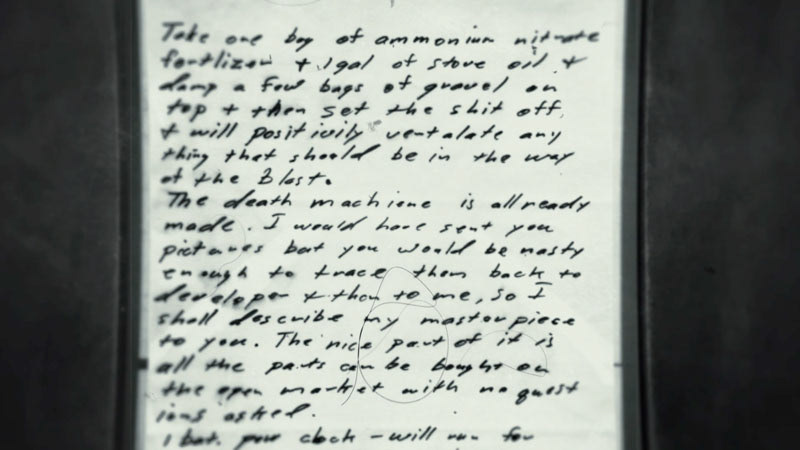 Take one bag of ammonium nitrate
fertlizer + 1 gal of stove oil +
dump a few bags of gravel on
top + then set the shit off
+ will positivily ventalate any
thing that should be in the way
of the Blast.
The death machiene is allready
made. I would have sent you
pictures but you would be nasty
enough to trace them back to
developer + then to me, so I
shall describe my masterpiece
to you. The nice part of it is
all the parts can be bought on
the open market with no quest
ions asked.
1 bat. pow clock - will run for